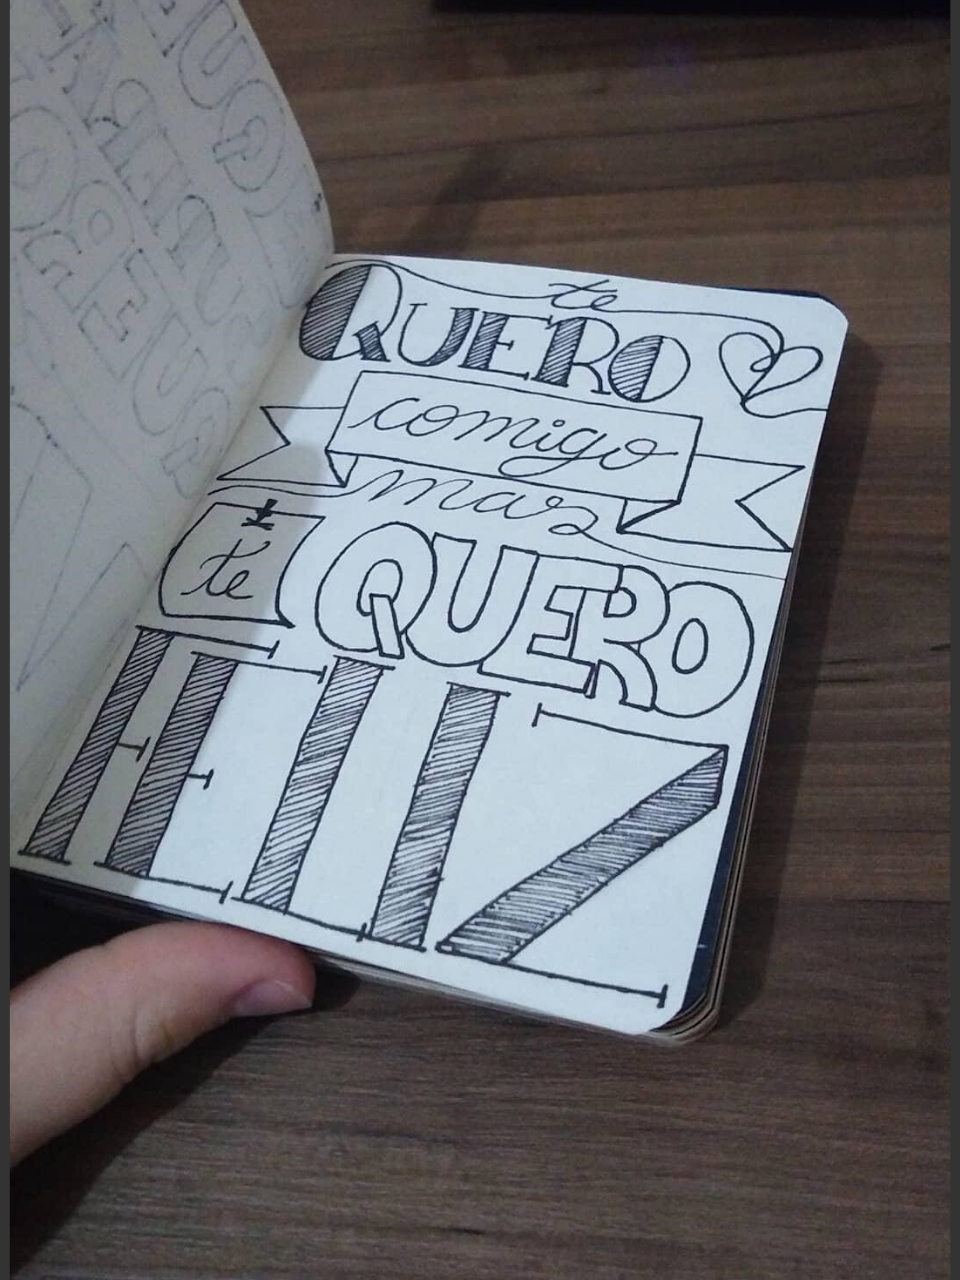 te
QUERO
comigo
mas
te QUERO
FELIZ